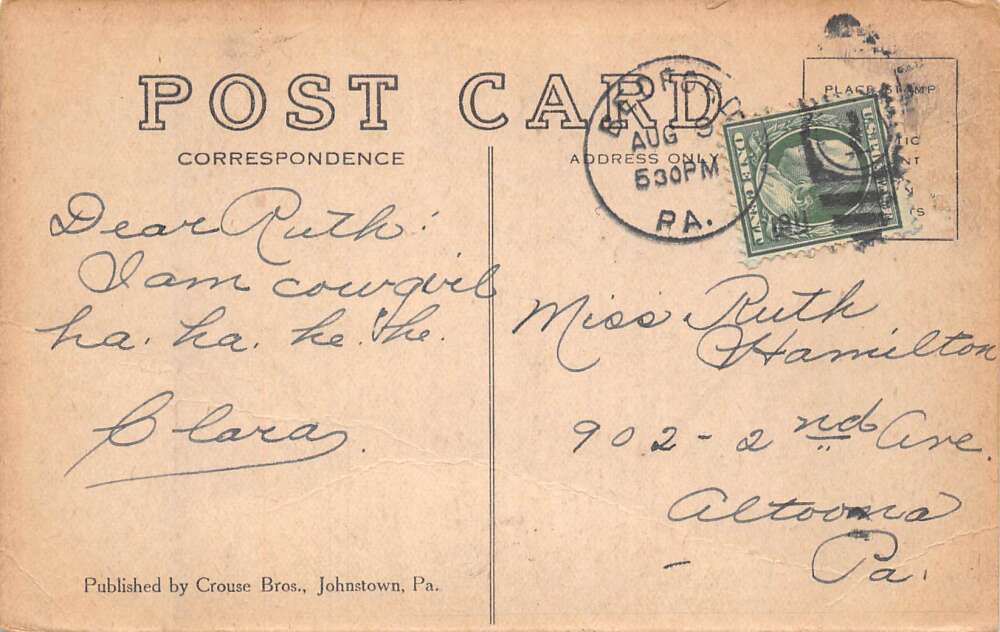 POST CARD
CORRESPONDENCE
ADDRESS ONLY
BEDFORD
AUG 9
530PM
1911
PA.
PLACE STAMP
ONE CENT
Dear Ruth:
I am cowgirl
ha. ha. he. he.
Clara.
Miss Ruth
Hamilton
902-2nd Ave.
Altoona
Pa.
Published by Crouse Bros., Johnstown, Pa.